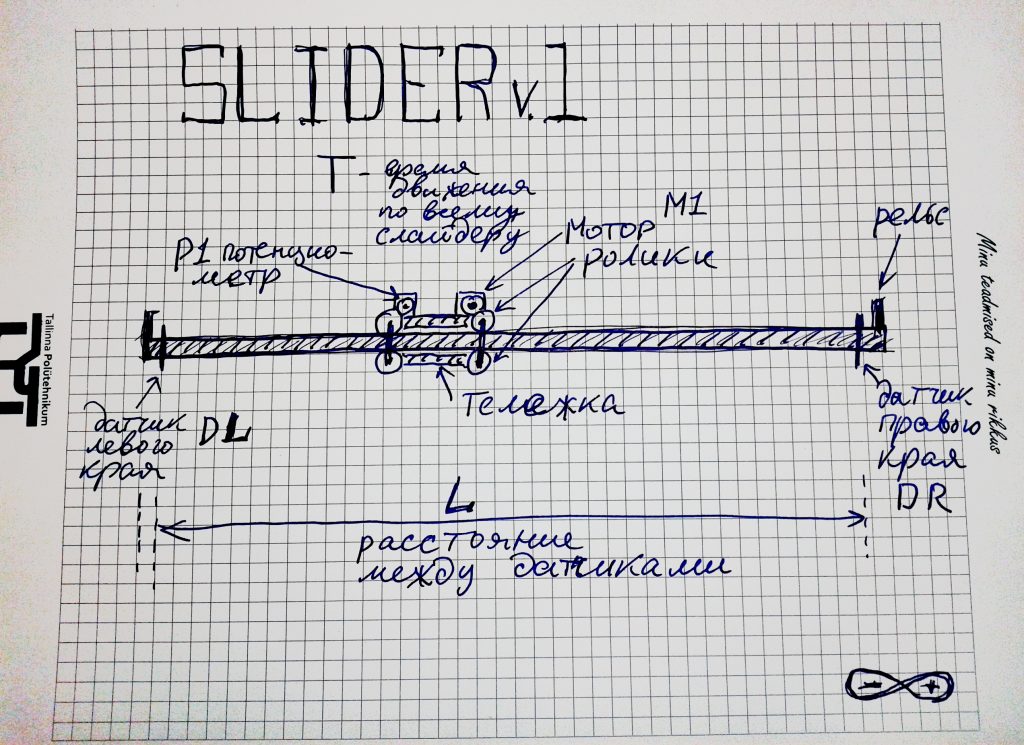 SLIDER v.1
T - время
движения
по всему
слайдеру
P1 потенцио-
метр
Мотор M1
ролики
рельс
Тележка
датчик
левого
края
DL
датчик
правого
края
DR
L
расстояние
между датчиками
Tallinna Polütehnikum
Minu teadmised on minu rikkus
- +